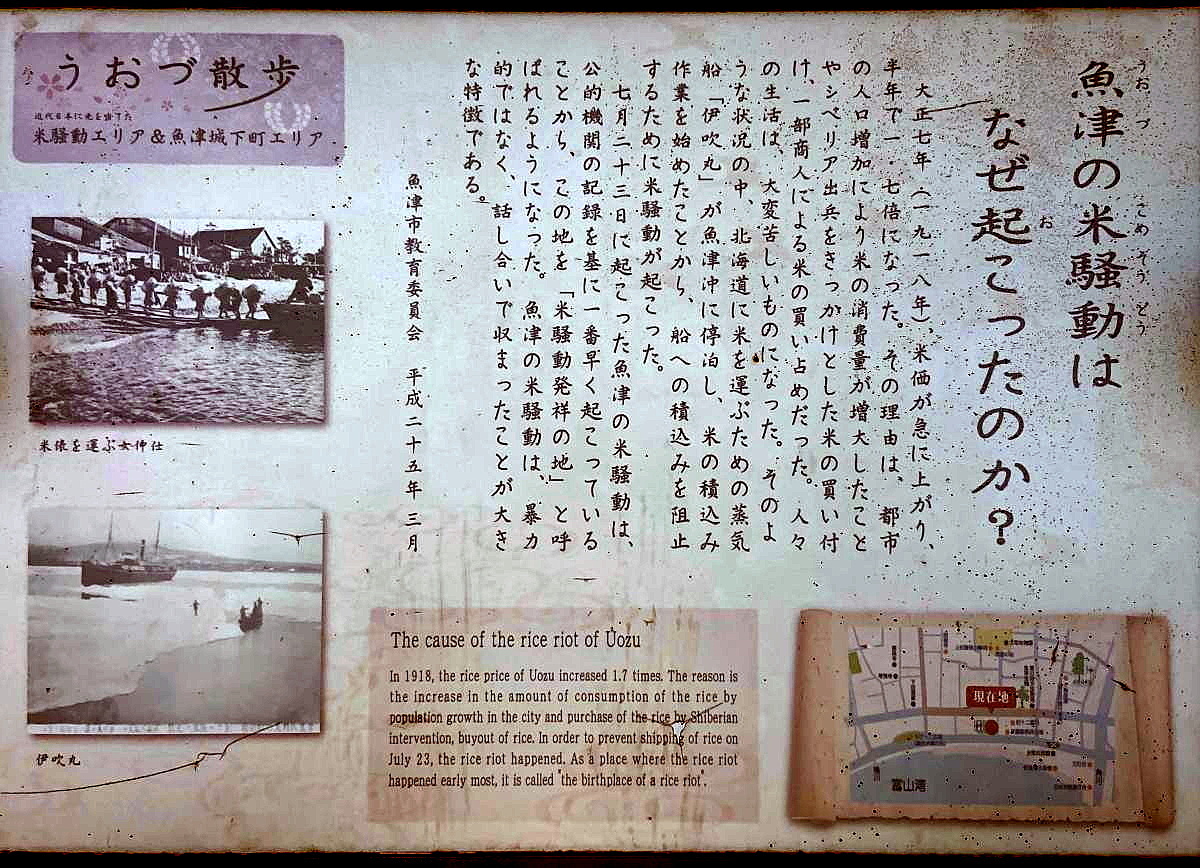 魚津の米騒動は
うおづ
こめそうどう
なぜ起こったのか？
お
大正七年（一九一八年）、米価が急に上がり、
半年で一・七倍になった。その理由は、都市
の人口増加により米の消費量が増大したこと
やシベリア出兵をきっかけとした米の買い付
け、一部商人による米の買い占めだった。人々
の生活は、大変苦しいものになった。そのよ
うな状況の中、北海道に米を運ぶための蒸気
船「伊吹丸」が魚津沖に停泊し、米の積込み
作業を始めたことから、船への積込みを阻止
するために米騒動が起こった。
七月二十三日に起こった魚津の米騒動は、
公的機関の記録を基に一番早く起こっている
ことから、この地を「米騒動発祥の地」と呼
ばれるようになった。魚津の米騒動は、暴力
的ではなく、話し合いで収まったことが大き
な特徴である。
魚津市教育委員会　平成二十五年三月
うおづ散歩
近代日本に光を当てた
米騒動エリア＆魚津城下町エリア
米俵を運ぶ女仲仕
伊吹丸
The cause of the rice riot of Uozu
In 1918, the rice price of Uozu increased 1.7 times. The reason is
the increase in the amount of consumption of the rice by
population growth in the city and purchase of the rice by Shiberian
intervention, buyout of rice. In order to prevent shipping of rice on
July 23, the rice riot happened. As a place where the rice riot
happened early most, it is called "the birthplace of a rice riot".
現在地
富山湾